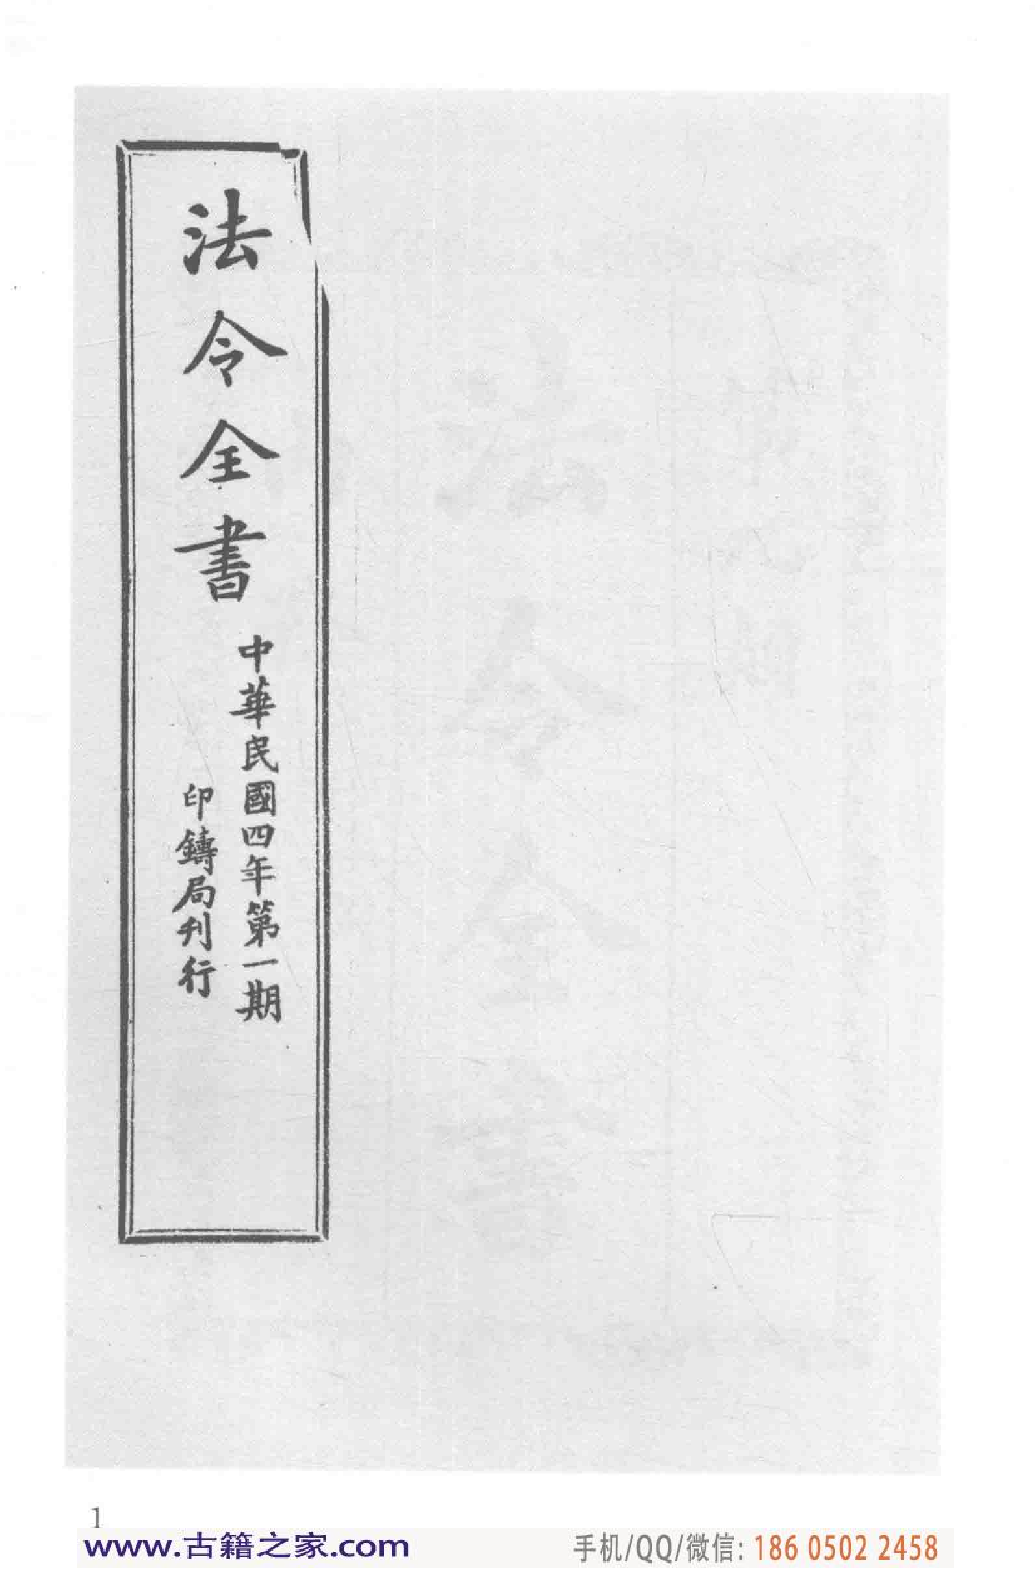 法令全書
中華民國四年第一期
印鑄局刊行
1
www.古籍之家.com
手机/QQ/微信: 186 0502 2458